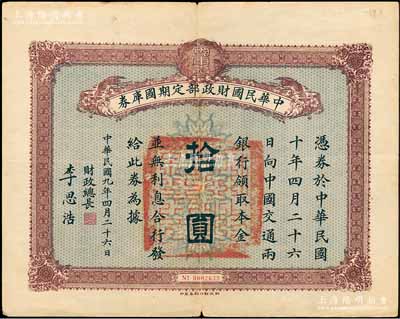 中華民國財政部定期國庫券
憑券於中華民國
十年四月二十六
日向中國交通兩
銀行領取本金
拾圓
並無利息合行發
給此券為據
中華民國九年四月二十六日
財政總長
李思浩